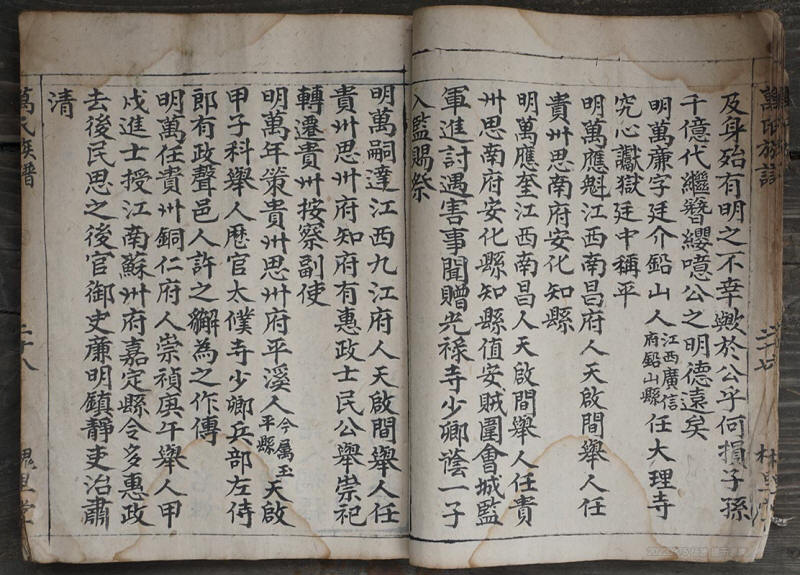 及身殆有明之不幸歟於公乎何損子孫
千億代繼簪纓噫公之明德遠矣
明萬廉字廷介鉛山人江西廣信府鉛山縣任大理寺
究心讞獄廷中稱平
明萬應魁江西南昌府人天啟間舉人任
貴州思南府安化知縣
明萬應奎江西南昌人天啟間舉人任貴
州思南府安化縣知縣值安賊圍會城監
軍進討遇害事聞贈光祿寺少卿蔭一子
入監賜祭
明萬嗣達江西九江府人天啟間舉人任
貴州思州府知府有惠政士民公舉崇祀
轉遷貴州按察副使
明萬年策貴州思州府平溪人今屬玉平縣天啟
甲子科舉人歷官太僕寺少卿兵部左侍
郎有政聲邑人許之獬為之作傳
明萬任貴州銅仁府人崇禎庚午舉人甲
戌進士授江南蘇州府嘉定縣令多惠政
去後民思之後官御史廉明鎮靜吏治肅
清
萬氏族譜 二十八